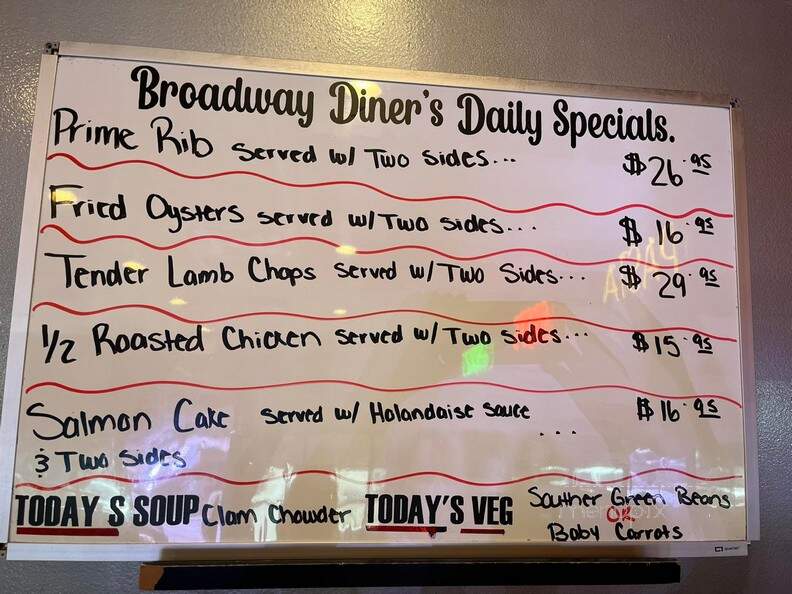 Broadway Diner's Daily Specials.
Prime Rib served w/ Two sides... $26.95
Fried Oysters served w/ Two sides... $16.95
Tender Lamb Chops served w/ Two Sides... $29.95
1/2 Roasted Chicken served w/ Two sides... $15.95
Salmon Cake served w/ Holandaise sauce ... $16.95
& Two sides
TODAY S SOUP Clam Chowder TODAY'S VEG Souther Green Beans
OR
Baby Carrots